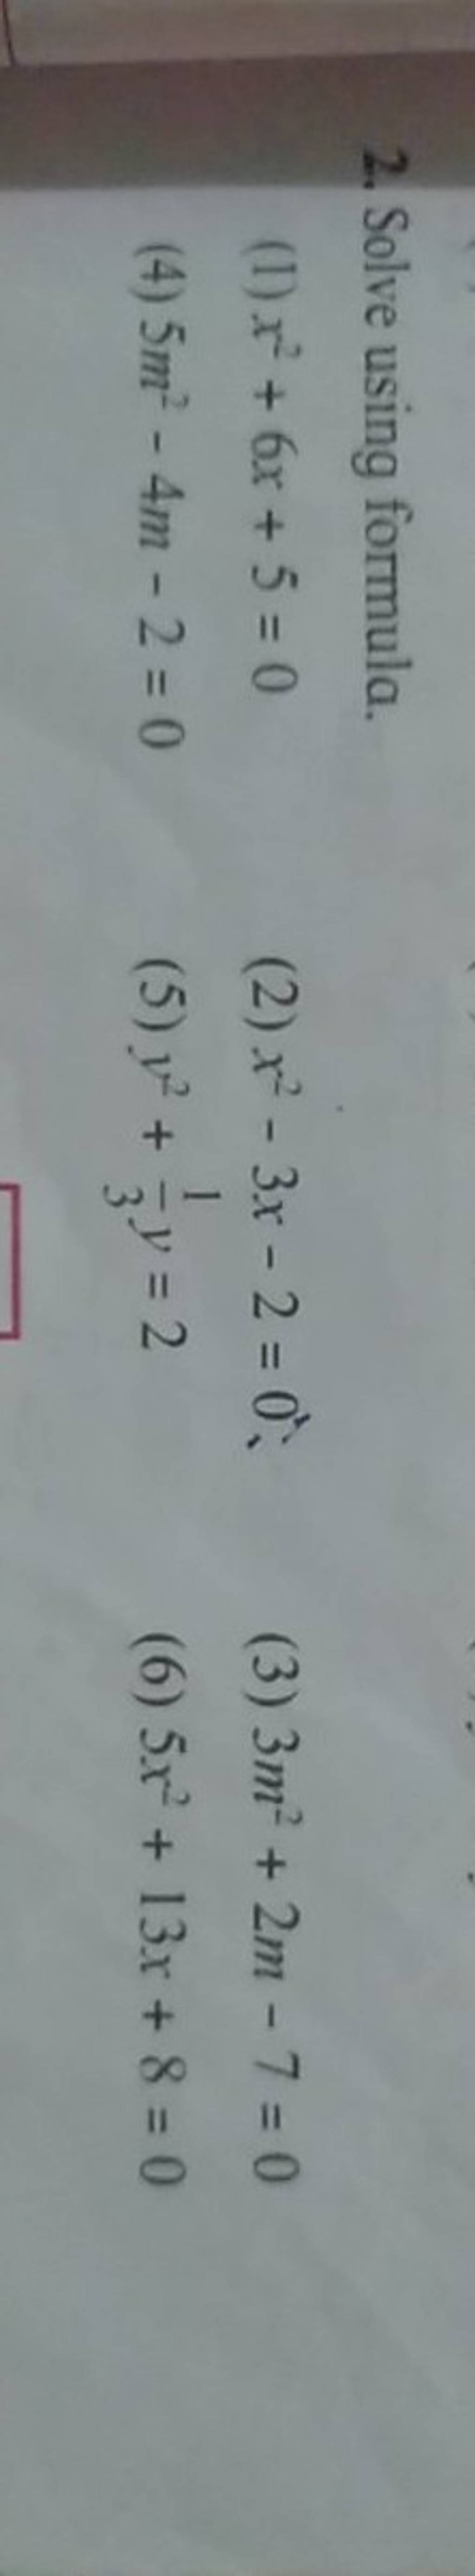 2. Solve using formula.
(1) x² + 6x + 5 = 0 (2) x² – 3x – 2 = 0 (3) 3m² + 2m – 7 = 0
(4) 5m² – 4m – 2 = 0 (5) y² + 1/3 y = 2 (6) 5x² + 13x + 8 = 0